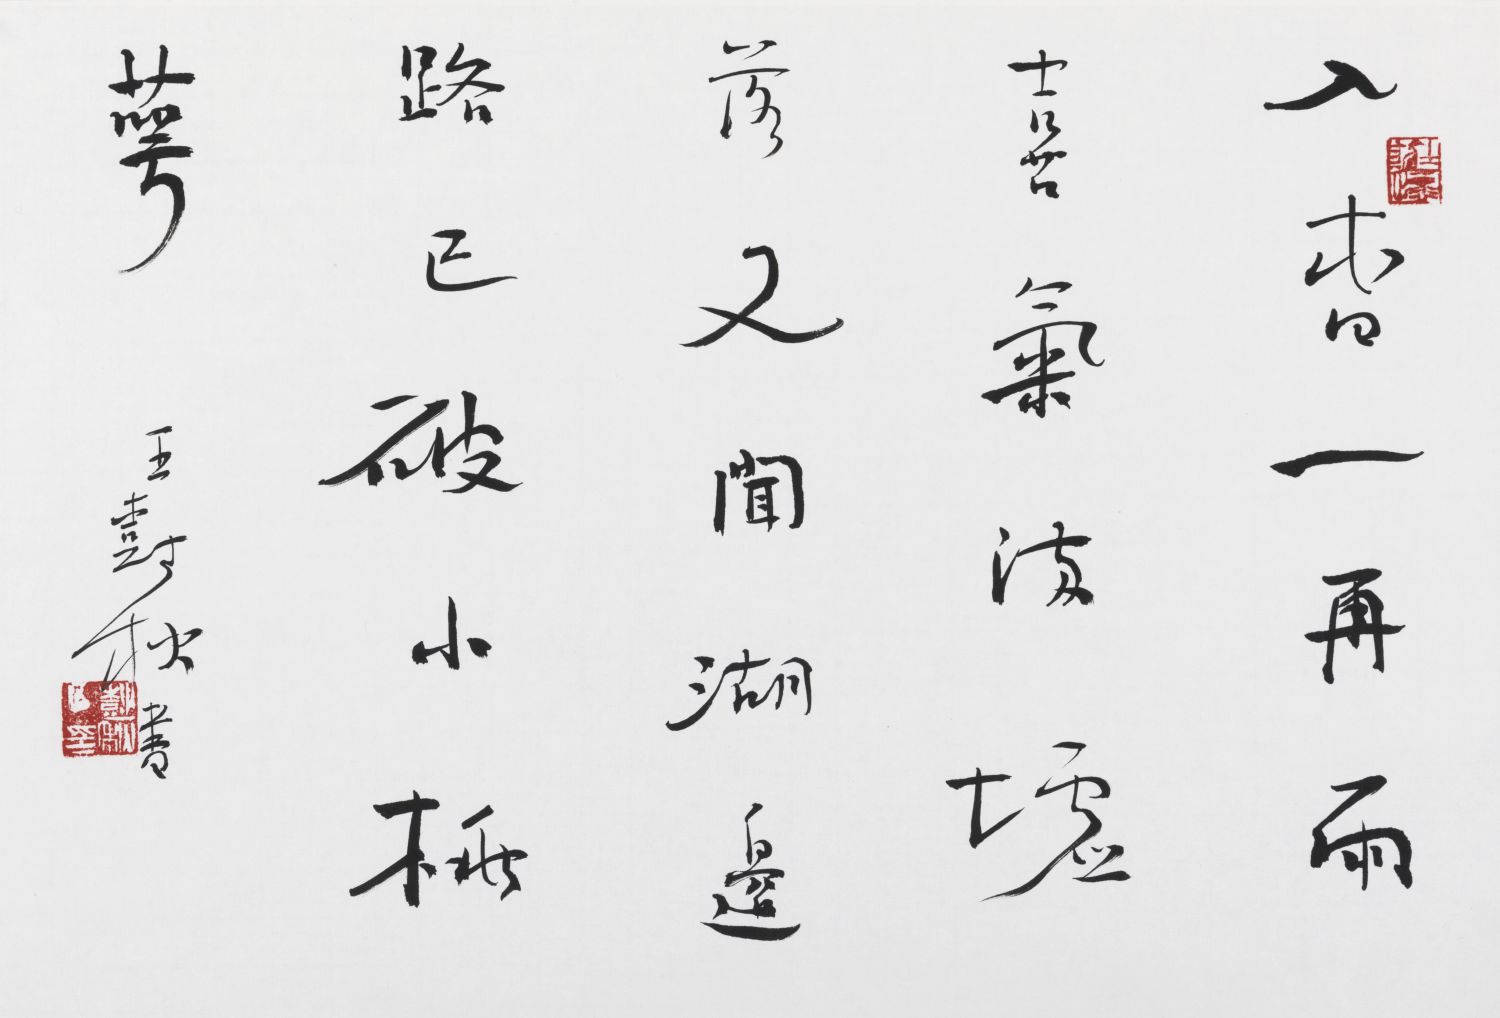 入春一再雨
喜氣滿墟
落又聞湖邊
路已破小梅
萼 王壽秋書